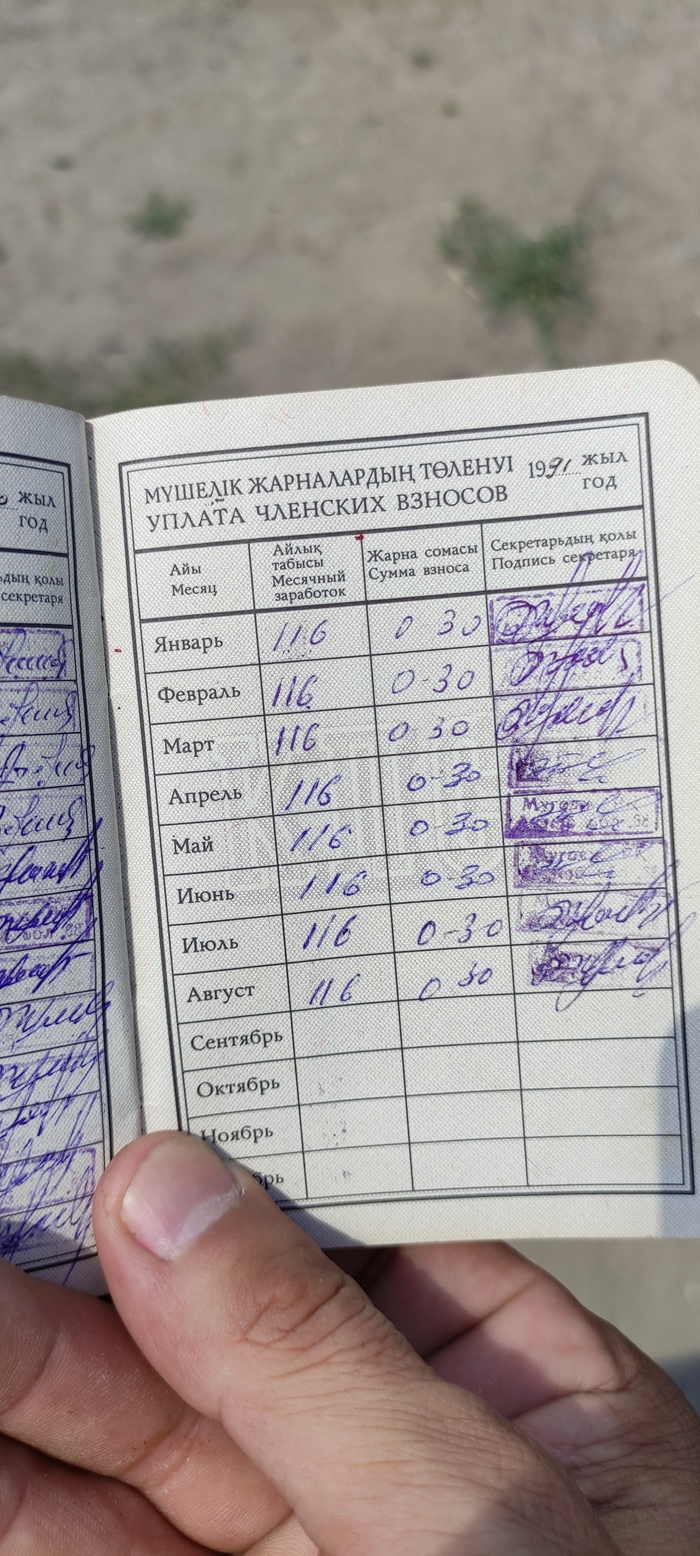 жыл
год
дың қолы
секретаря
МҮШЕЛІК ЖАРНАЛАРДЫҢ ТӨЛЕНУІ 1991 жыл
УПЛАТА ЧЛЕНСКИХ ВЗНОСОВ год
Айы
Месяц
Айлық
табысы
Месячный
заработок
Жарна сомасы
Сумма взноса
Секретарьдың қолы
Подпись секретаря
Январь 116 0-30
Февраль 116 0-30
Март 116 0-30
Апрель 116 0-30
Май 116 0-30
Июнь 116 0-30
Июль 116 0-30
Август 116 0 30
Сентябрь
Октябрь
Ноябрь
брь